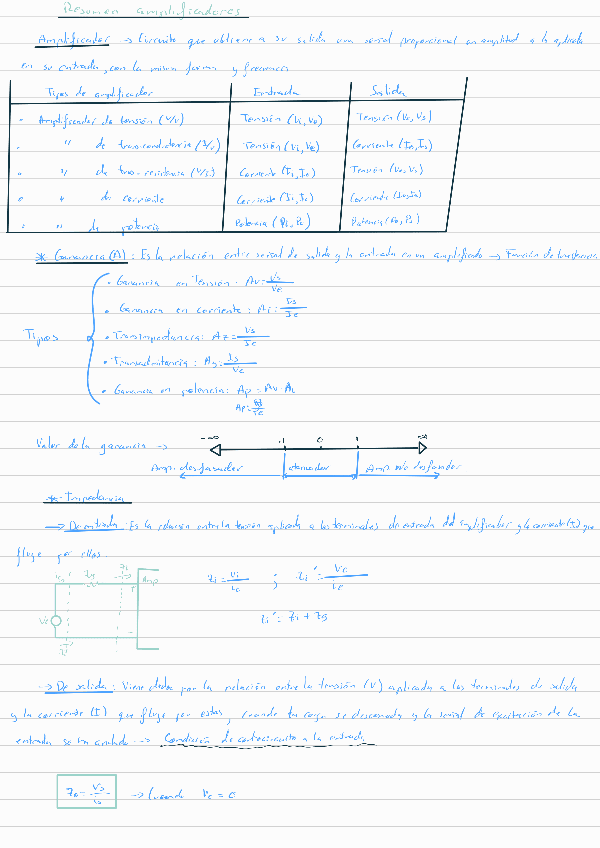 Resumen amplificadores
Amplificador → Circuito que obtiene a su salida una señal proporcional en amplitud a la aplicada
en su entrada, con la misma forma y frecuencia
Tipos de amplificador Entrada Salida
• Amplificador de tensión (V/V) Tensión (Vi, Ve) Tensión (Vo, Vs)
• " de transconductancia (I/V) Tensión (Vi, Ve) Corriente (Io, Is)
• " de trans-resistencia (V/I) Corriente (Ii, Ie) Tensión (Vo, Vs)
• " de corriente Corriente (Ii, Ie) Corriente (Io, Is)
• " de potencia Potencia (Pi, Pe) Potencia (Po, Ps)
* Ganancia (A): Es la relación entre señal de salida y la entrada en un amplificado → Función de transferencia
• Ganancia en Tensión: Av = Vs/Ve
• Ganancia en corriente: Ai = Is/Ie
Tipos • Transimpedancia: Az = Vs/Ie
• Transadmitancia: Ay = Is/Ve
• Ganancia en potencia: Ap = Av Ai
Ap =
Valor de la ganancia → -∞ -1 0 1 ∞
Amp. desfasador atenuador Amp No desfasador
* Impedancia
→ De entrada: Es la relación entre la tensión aplicada a los terminales de entrada del amplificador y la corriente (I) que
fluye por ellos.
Zg Zi Amp
Zi = Vi/Ie ; Zi' = Ve/Ie
Vg
Zi' = Zi + Zg
→ De salida: Viene dada por la relación entre la tensión (V) aplicada a los terminales de salida
y la corriente (I) que fluye por estos, cuando la carga se desconecta y la señal de excitación de la
entrada se ha anulado → Condición de cortocircuito a la entrada
Zo = Vo/Io → Cuando Ve = 0